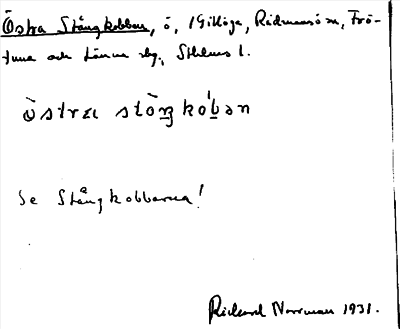 Östra Stångkobben, ö, i Gillöga, Rådmansö sn, Frö-
tuna och Länna slg, Sthlms l.
östra stoŋkobən
Se Stångkobbarna!
Richard Norrman 1931.